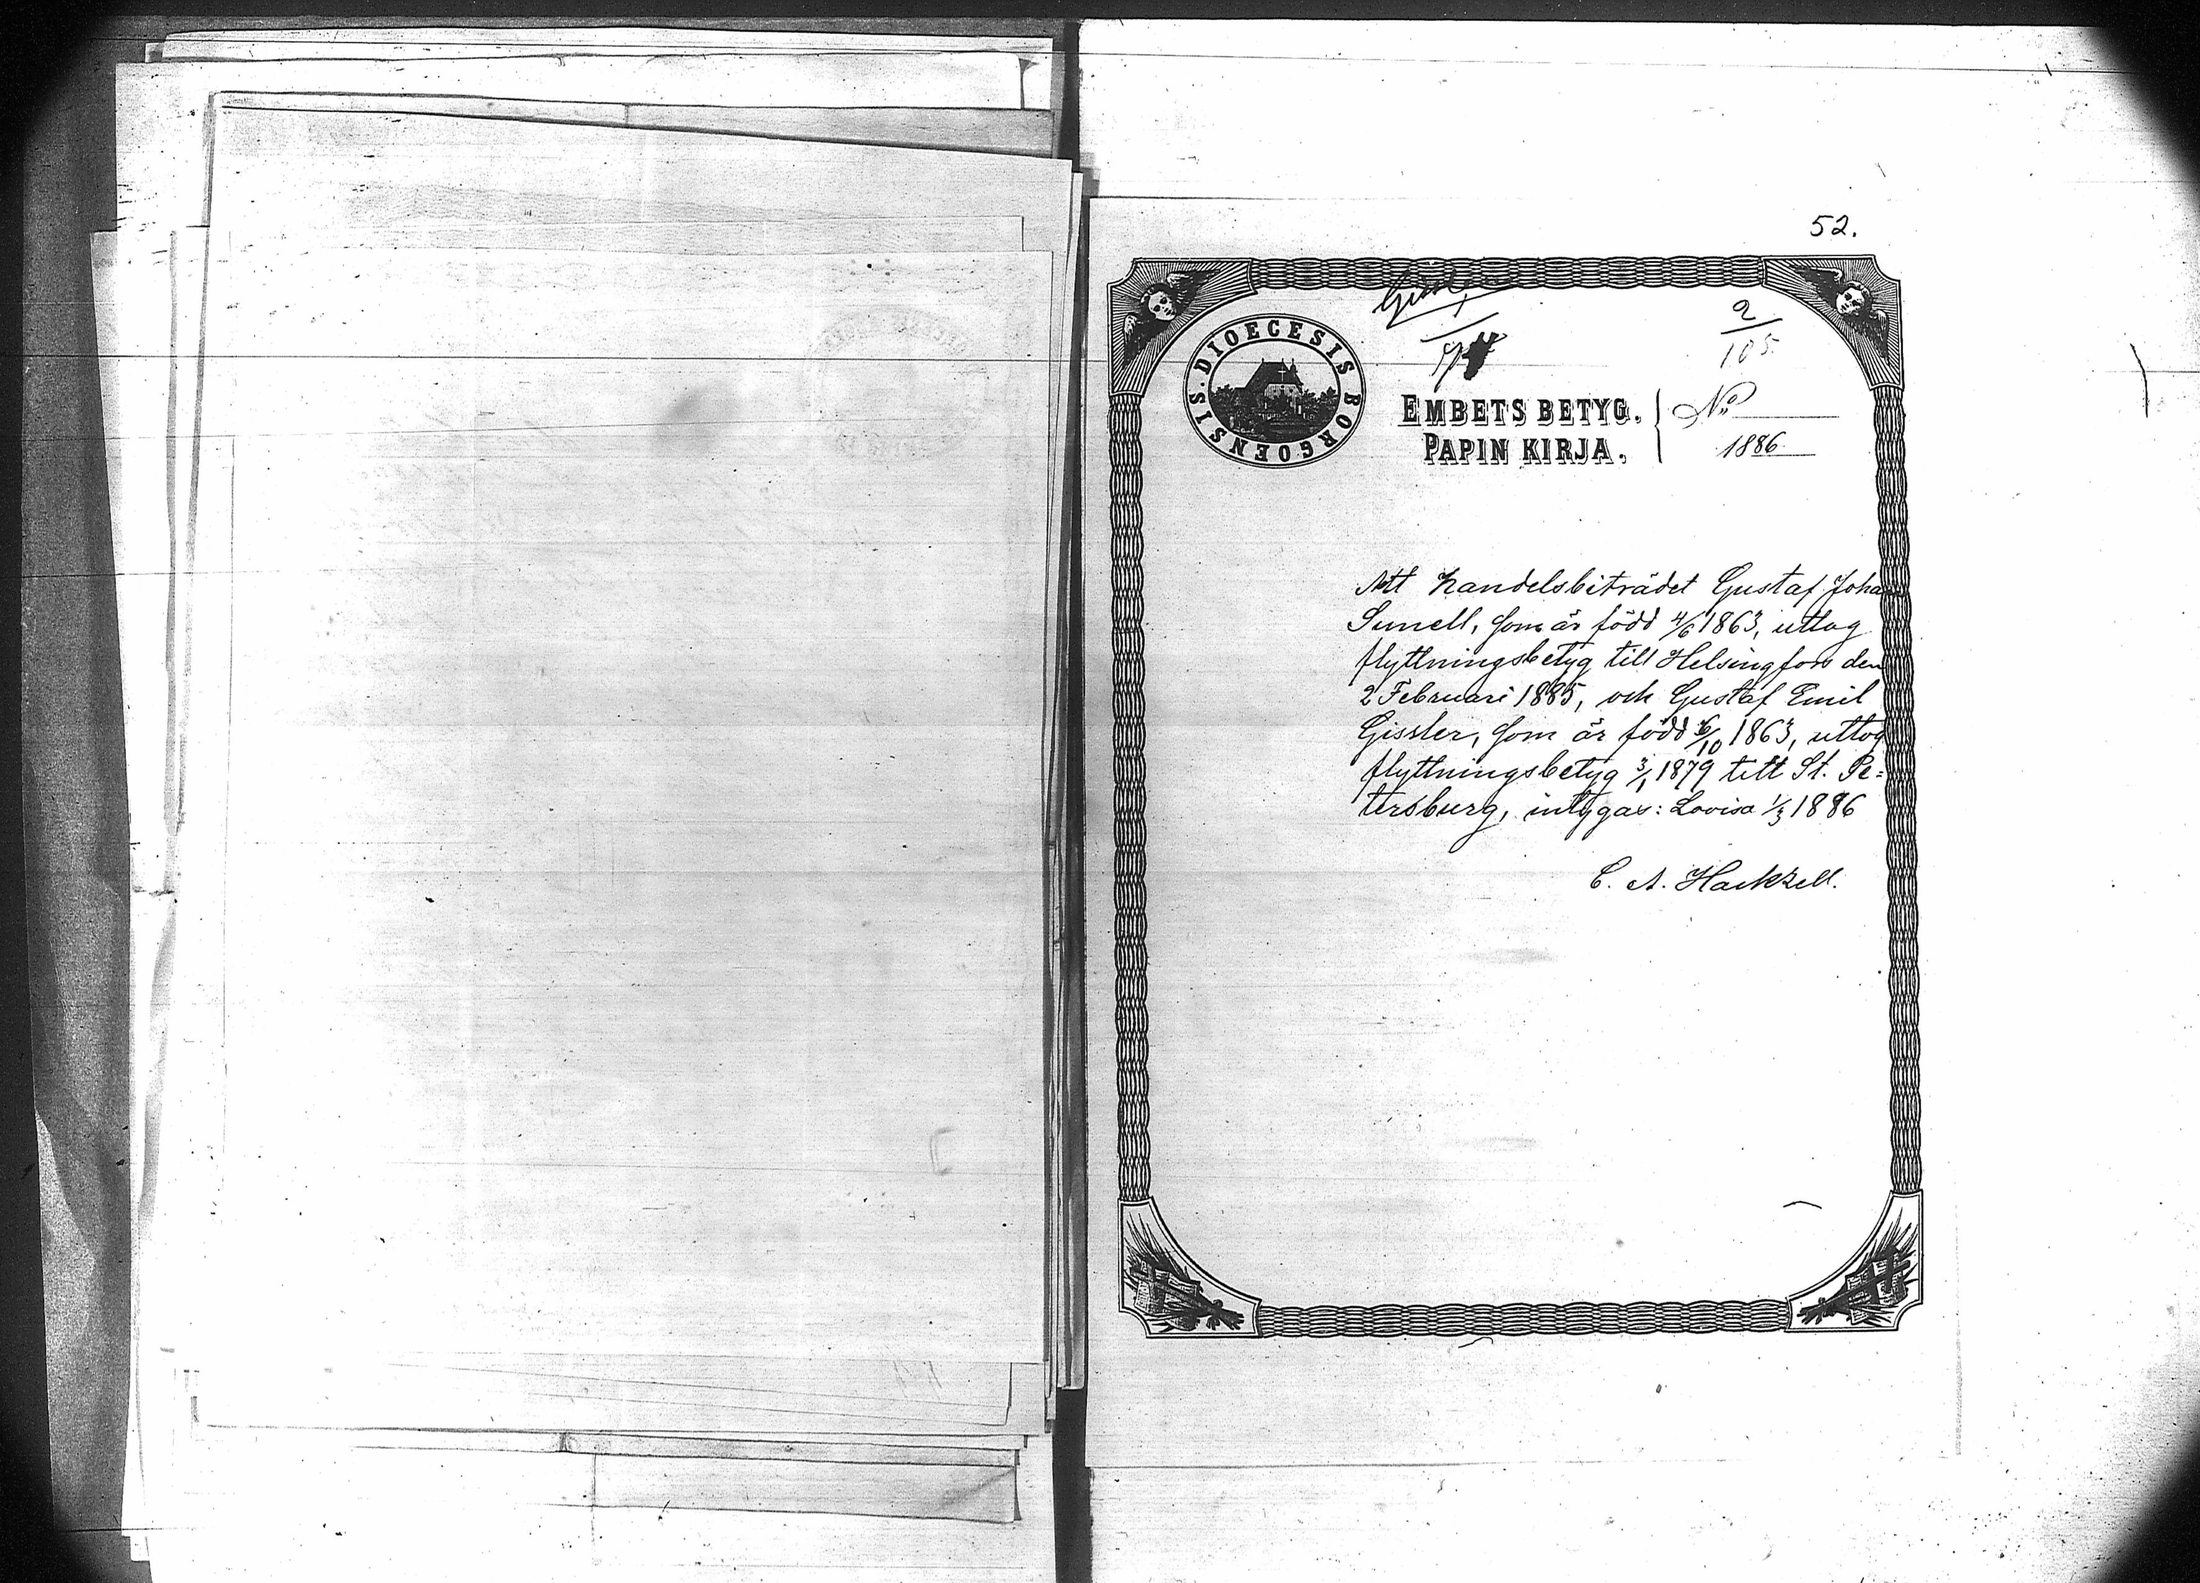 52.
2
105
DIOECESIS BORGOENSIS.
EMBETS BETYG.
PAPIN KIRJA.
No
1886.
Att handelsbiträdet Gustaf Joha
Sunell, som är född 4/6 1863, uttog
flyttningsbetyg till Helsingfors den
2 Februari 1885, och Gustaf Emil
Gissler, som är född 6/10 1863, uttog
flyttningsbetyg 3/1 1879 till St. Pe=
tersburg, intygas: Lovisa 1/3 1886
C. A. Hackzell.